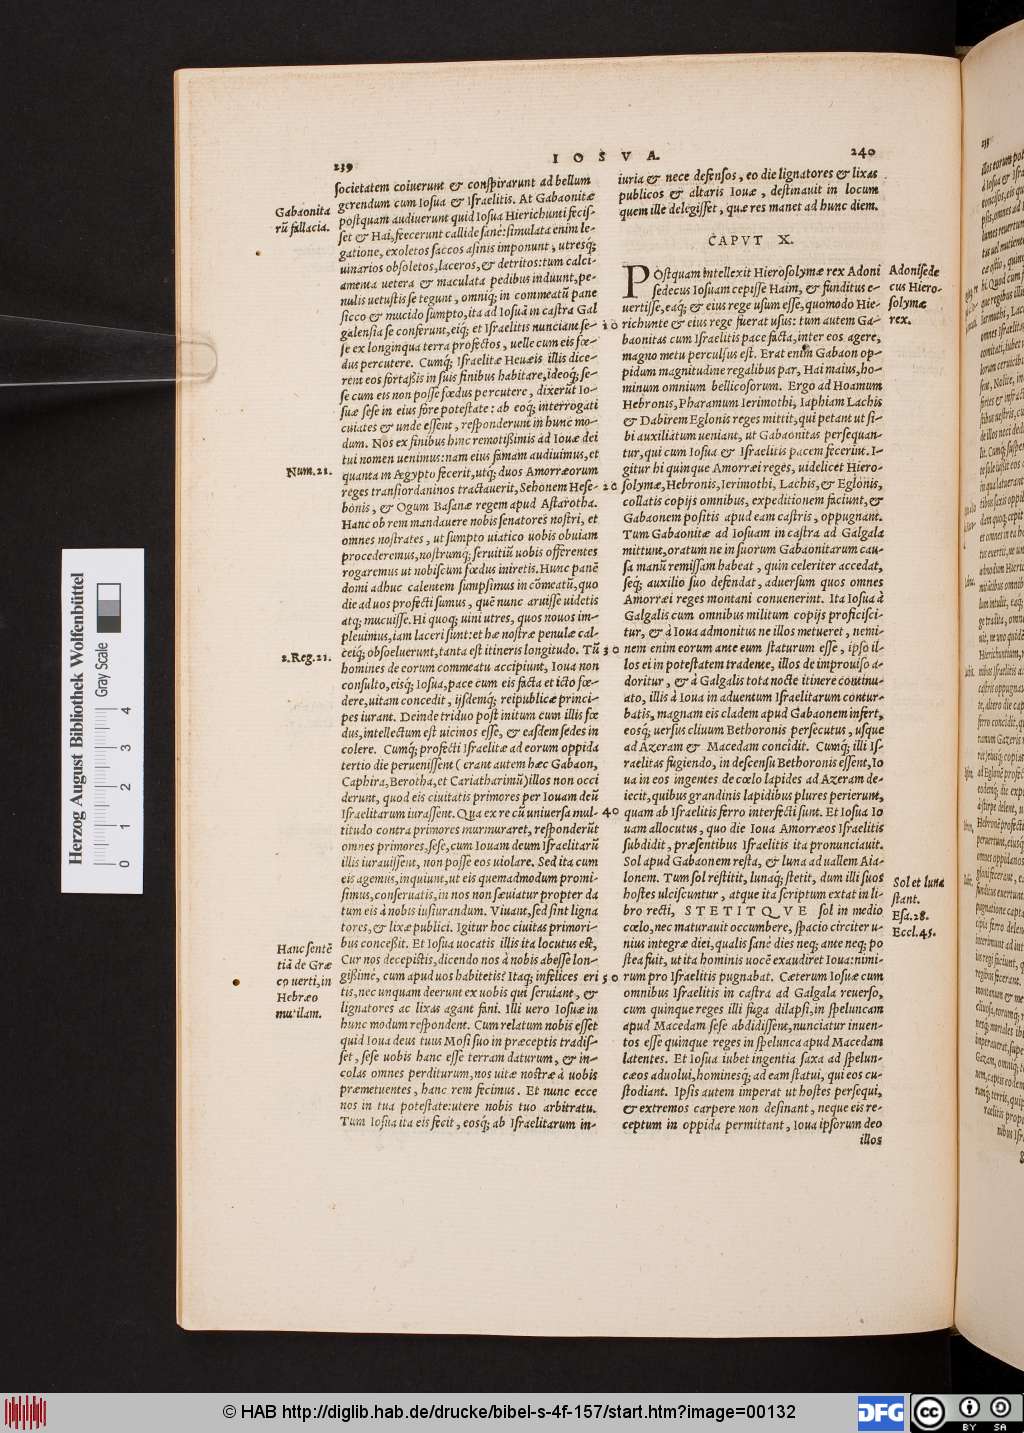 239
IOSVA.
240
ſocietatem coiuerunt & conſpirarunt ad bellum
gerendum cum Ioſua & Iſraelitis. At Gabaonitæ
poſtquam audiuerunt quid Ioſua Hierichunti feciſ-
ſet & Hai, fecerunt callide ſanè: ſimulata enim le-
gatione, exoletos ſaccos aſinis imponunt, utresq;
uinarios obſoletos, laceros, & detritos: tum calci-
amenta uetera & maculata pedibus induunt, pe-
nulis uetuſtis ſe tegunt, omniq; in commeatũ pane
ſicco & mucido ſumpto, ita ad Ioſuã in caſtra Gal
galenſia ſe conferunt, eiq; et Iſraelitis nunciant ſe-
ſe ex longinqua terra profectos, uelle cum eis fœ-
dus percutere. Cumq; Iſraelitæ Heuæis illis dice-
rent eos fortaßis in ſuis finibus habitare, ideoq; ſe-
ſe cum eis non poſſe fœdus percutere, dixerũt Io-
ſuæ ſeſe in eius fore poteſtate: ab eoq; interrogati
cuiates & unde eſſent, reſponderunt in hunc mo-
dum. Nos ex finibus hinc remotißimis ad Iouæ dei
tui nomen uenimus: nam eius famam audiuimus, et
quanta in Ægypto fecerit, utq; duos Amorræorum
reges tranſiordaninos tractauerit, Sehonem Heſe-
bonis, & Ogum Baſanæ regem apud Aſtarotha.
Hanc ob rem mandauere nobis ſenatores noſtri, et
omnes noſtrates, ut ſumpto uiatico uobis obuiam
procederemus, noſtrumq; ſeruitiũ uobis offerentes
rogaremus ut nobiſcum fœdus iniretis. Hunc panẽ
domi adhuc calentem ſumpſimus in cõmeatũ, quo
die ad uos profecti ſumus, quẽ nunc aruiſſe uidetis
atq; mucuiſſe. Hi quoq; uini utres, quos nouos im-
pleuimus, iam laceri ſunt: et hæ noſtræ penulæ cal-
ceiq; obſoeluerunt, tanta eſt itineris longitudo. Tũ
homines de eorum commeatu accipiunt, Ioua non
conſulto, eisq; Ioſua, pace cum eis facta et icto fœ-
dere, uitam concedit, ijſdemq; reipublicæ princi-
pes iurant. Deinde triduo poſt initum cum illis fœ
dus, intellectum eſt uicinos eſſe, & eaſdem ſedes in
colere. Cumq; profecti Iſraelitæ ad eorum oppida
tertio die perueniſſent (erant autem hæc Gabaon,
Caphira, Berotha, et Cariatharimũ) illos non occi
derunt, quod eis ciuitatis primores per Iouam deũ
Iſraelitarum iuraſſent. Qua ex re cũ uniuerſa mul-
titudo contra primores murmuraret, reſponderũt
omnes primores, ſeſe, cum Iouam deum Iſraelitarũ
illis iurauiſſent, non poſſe eos uiolare. Sed ita cum
eis agemus, inquiunt, ut eis quemadmodum promi-
ſimus, conſeruatis, in nos non ſæuiatur propter da
tum eis à nobis iuſiurandum. Viuant, ſed ſint ligna
tores, & lixæ publici. Igitur hoc ciuitas primori-
bus conceßit. Et Ioſua uocatis illis ita locutus eſt,
Cur nos decepiſtis, dicendo nos à nobis abeſſe lon-
gißimè, cum apud uos habitetis? Itaq; infelices eri
tis, nec unquam deerunt ex uobis qui ſeruiant, &
lignatores ac lixas agant fani. Illi uero Ioſuæ in
hunc modum reſpondent. Cum relatum nobis eſſet
quid Ioua deus tuus Moſi ſuo in præceptis tradiſ-
ſet, ſeſe uobis hanc eſſe terram daturum, & in-
colas omnes perditurum, nos uitæ noſtræ à uobis
præmetuentes, hanc rem fecimus. Et nunc ecce
nos in tua poteſtate: utere nobis tuo arbitratu.
Tum Ioſua ita eis fecit, eosq; ab Iſraelitarum in-
Gabaonita
rũ fallacia.
Num.21.
2.Reg.21.
Hanc ſentẽ
tiã de Græ
co uerti, in
Hebræo
mutilam.
10
20
30
40
50
iuria & nece defenſos, eo die lignatores & lixas
publicos & altaris Iouæ, deſtinauit in locum
quem ille delegiſſet, quæ res manet ad hunc diem.
CAPVT X.
POſtquam intellexit Hieroſolymæ rex Adoni
ſedecus Ioſuam cepiſſe Haim, & funditus e-
uertiſſe, eaq; & eius rege uſum eſſe, quomodo Hie-
richunte & eius rege fuerat uſus: tum autem Ga-
baonitas cum Iſraelitis pace facta, inter eos agere,
magno metu perculſus eſt. Erat enim Gabaon op-
pidum magnitudine regalibus par, Hai maius, ho-
minum omnium bellicoſorum. Ergo ad Hoamum
Hebronis, Pharamum Ierimothi, Iaphiam Lachis
& Dabirem Eglonis reges mittit, qui petant ut ſi-
bi auxiliatum ueniant, ut Gabaonitas perſequan-
tur, qui cum Ioſua & Iſraelitis pacem fecerint. I-
gitur hi quinque Amorræi reges, uidelicet Hiero-
ſolymæ, Hebronis, Ierimothi, Lachis, & Eglonis,
collatis copijs omnibus, expeditionem faciunt, &
Gabaonem poſitis apud eam caſtris, oppugnant.
Tum Gabaonitæ ad Ioſuam in caſtra ad Galgala
mittunt, oratum ne in ſuorum Gabaonitarum cau-
ſa manũ remiſſam habeat, quin celeriter accedat,
ſeq; auxilio ſuo defendat, aduerſum quos omnes
Amorræi reges montani conuenerint. Ita Ioſua à
Galgalis cum omnibus militum copijs proficiſci-
tur, & à Ioua admonitus ne illos metueret, nemi-
nem enim eorum ante eum ſtaturum eſſe, ipſo il-
los ei in poteſtatem tradente, illos de improuiſo a-
doritur, & à Galgalis tota nocte itinere continu-
ato, illis à Ioua in aduentum Iſraelitarum contur-
batis, magnam eis cladem apud Gabaonem infert,
eosq; uerſus cliuum Bethoronis perſecutus, uſque
ad Azeram & Macedam concidit. Cumq; illi Iſ-
raelitas fugiendo, in deſcenſu Bethoronis eſſent, Io
ua in eos ingentes de cœlo lapides ad Azeram de-
iecit, quibus grandinis lapidibus plures perierunt,
quam ab Iſraelitis ferro interfecti ſunt. Et Ioſua Io
uam allocutus, quo die Ioua Amorræos Iſraelitis
ſubdidit, præſentibus Iſraelitis ita pronunciauit.
Sol apud Gabaonem reſta, & luna ad uallem Aia-
lonem. Tum ſol reſtitit, lunaq; ſtetit, dum illi ſuos
hoſtes ulciſcuntur, atque ita ſcriptum extat in li-
bro recti, STETITQVE ſol in medio
cœlo, nec maturauit occumbere, ſpacio circiter u-
nius integræ diei, qualis ſanè dies neq; ante neq; po
ſtea fuit, ut ita hominis uocẽ exaudiret Ioua: nimi-
rum pro Iſraelitis pugnabat. Cæterum Ioſuæ cum
omnibus Iſraelitis in caſtra ad Galgala reuerſo,
cum quinque reges illi fuga dilapſi, in ſpeluncam
apud Macedam ſeſe abdidiſſent, nunciatur inuen-
tos eſſe quinque reges in ſpelunca apud Macedam
latentes. Et Ioſua iubet ingentia ſaxa ad ſpelun-
cæ os aduolui, hominesq; ad eam ſtatui, qui eos cu-
ſtodiant. Ipſis autem imperat ut hoſtes perſequi,
& extremos carpere non deſinant, neque eis re-
ceptum in oppida permittant, Ioua ipſorum deo
illos
Adoniſede
cus Hiero-
ſolymæ
rex.
Sol et luna
ſtant.
Eſa.28.
Eccl.45.
Herzog August Bibliothek Wolfenbüttel
Gray Scale
0 1 2 3 4
© HAB http://diglib.hab.de/drucke/bibel-s-4f-157/start.htm?image=00132
DFG
cc
BY SA